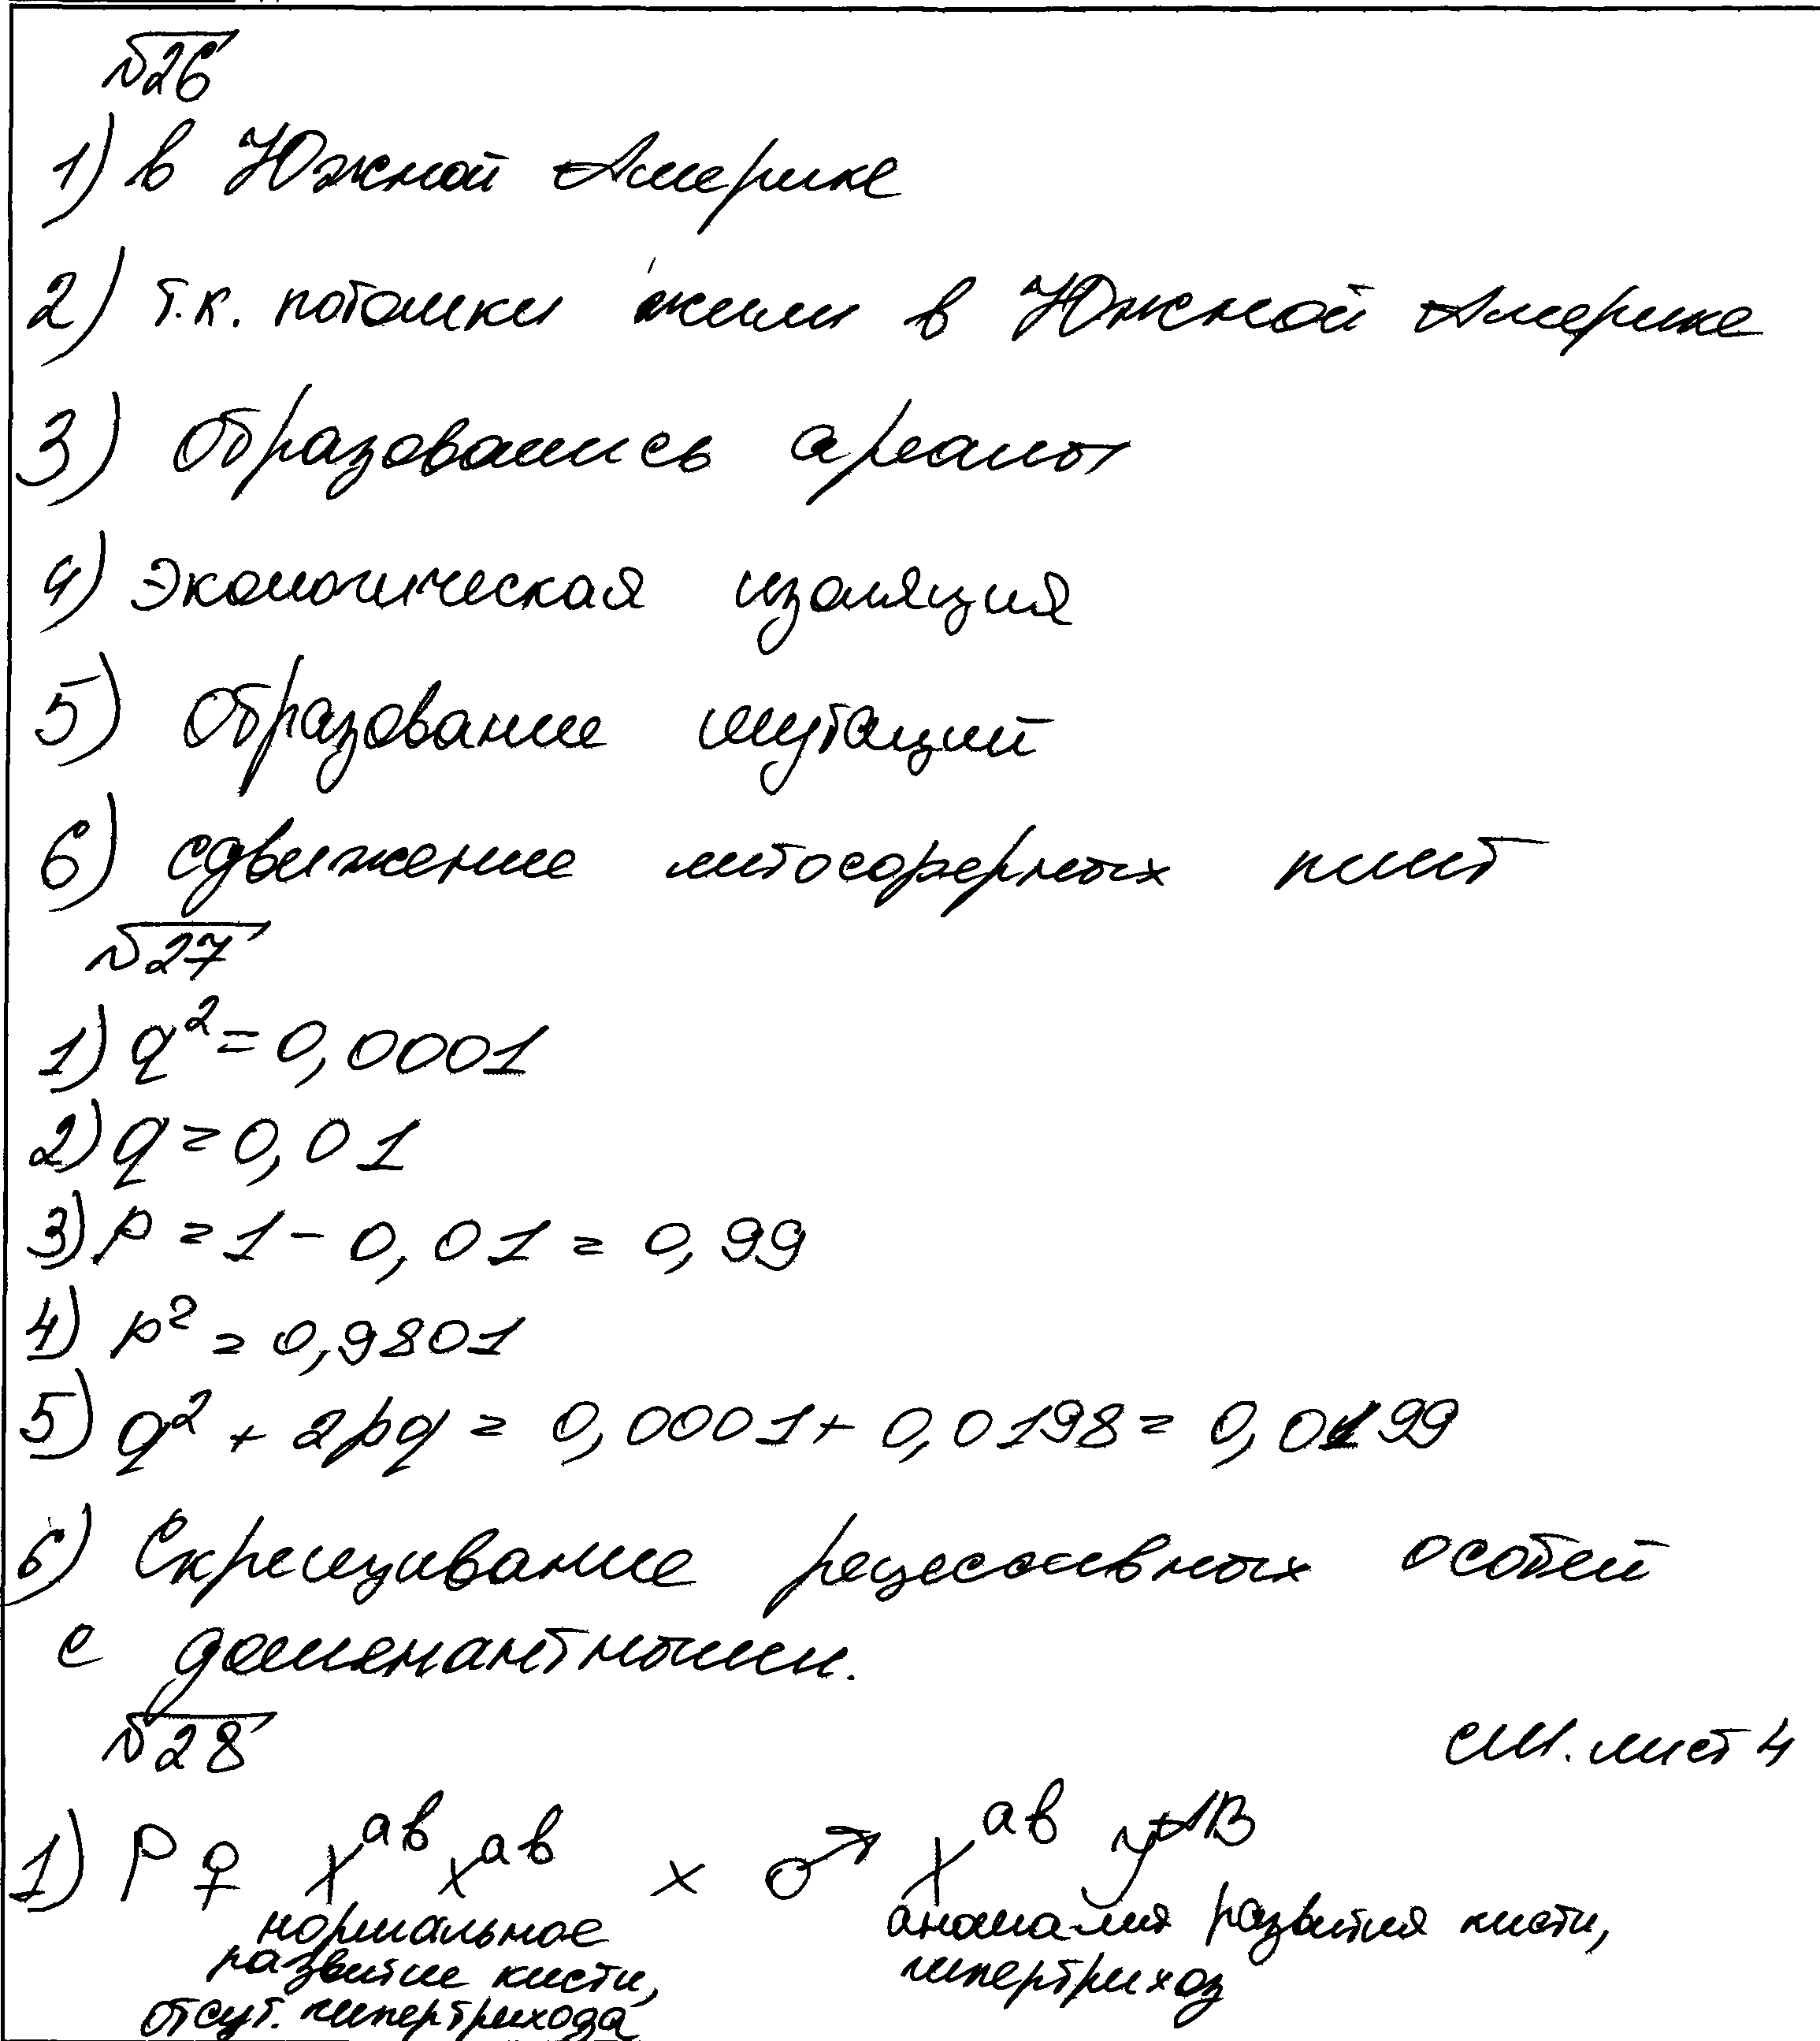 №26
1) в Южной Америке
2) т.к. потомки жили в Южной Америке
3) образовались ареалы
4) экологическая изоляция
5) образование мутаций
6) сдвижение литосферных плит
№27
1) q² = 0,0001
2) q = 0,01
3) p = 1 - 0,01 = 0,99
4) p² = 0,9801
5) q² + 2pq = 0,0001 + 0,0198 = 0,0199
6) Скрещивание рецессивных особей
с доминантными.
№28
см. лист 4
1) P ♀ Xᵃᵇ Xᵃᵇ x ♂ Xᵃᵇ Yᴬᴮ
нормальное развитие кисти, отсут. гипертрихоза
аномалия развития кисти, гипертрихоз